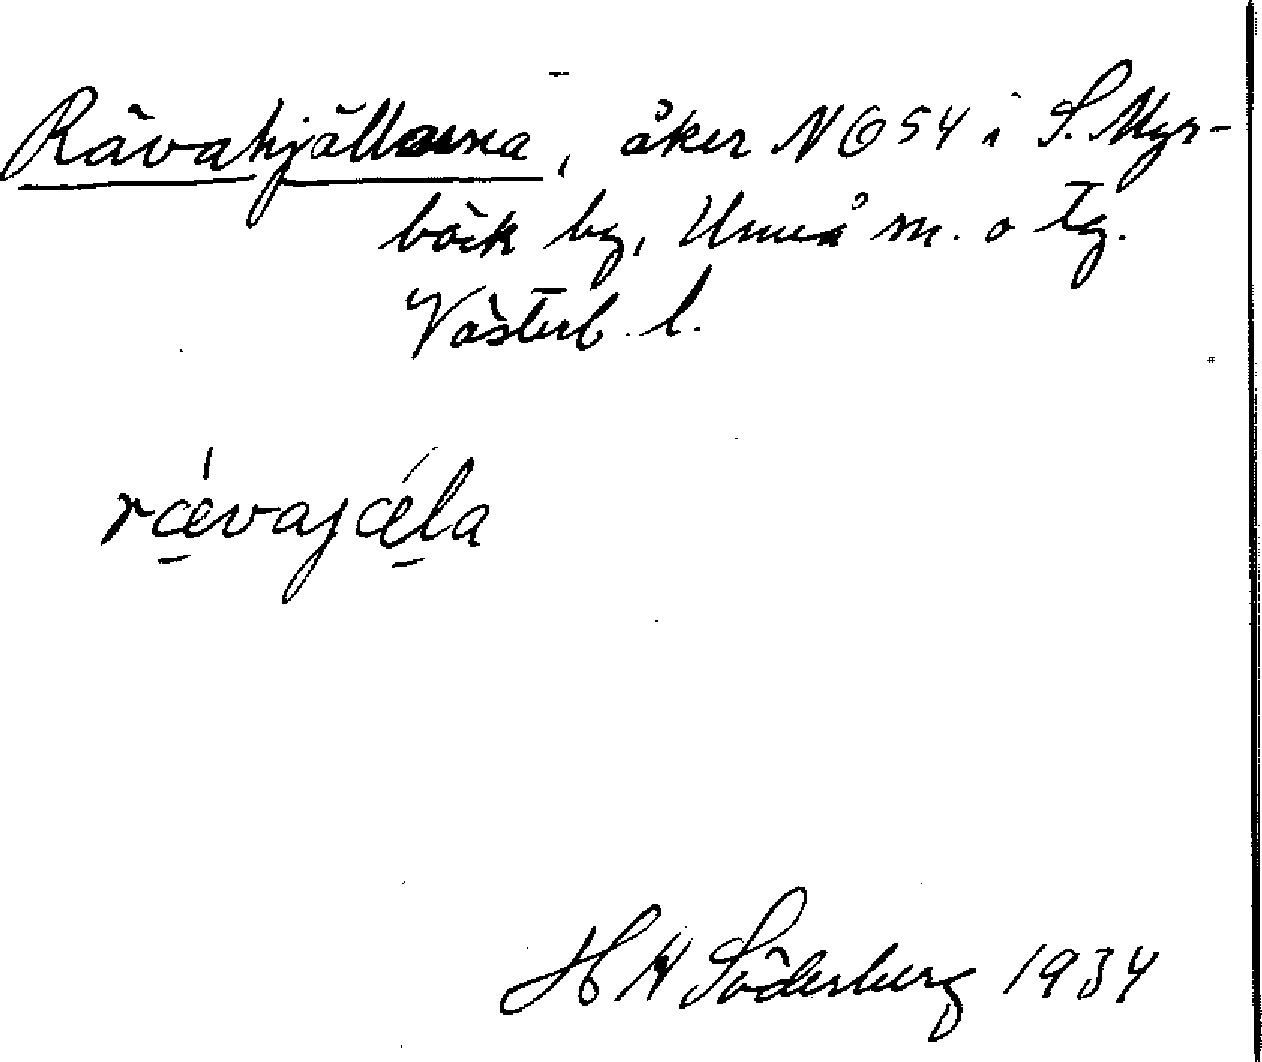 Rävahjällarna, åker N 654 i S. Myr-
bäck by, Umeå m. o tg.
Västerb. l.
rǽvajǽla
H W Söderberg 1934